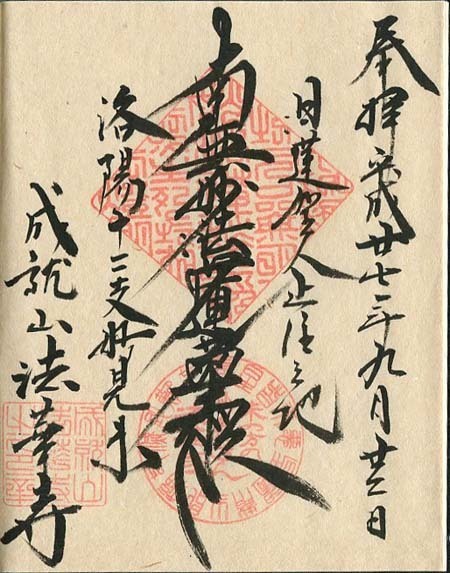 奉拝 平成廿七年九月廿二日
日蓮聖人止住之地
南無妙法蓮華経
洛陽十二支妙見未
成就山法華寺